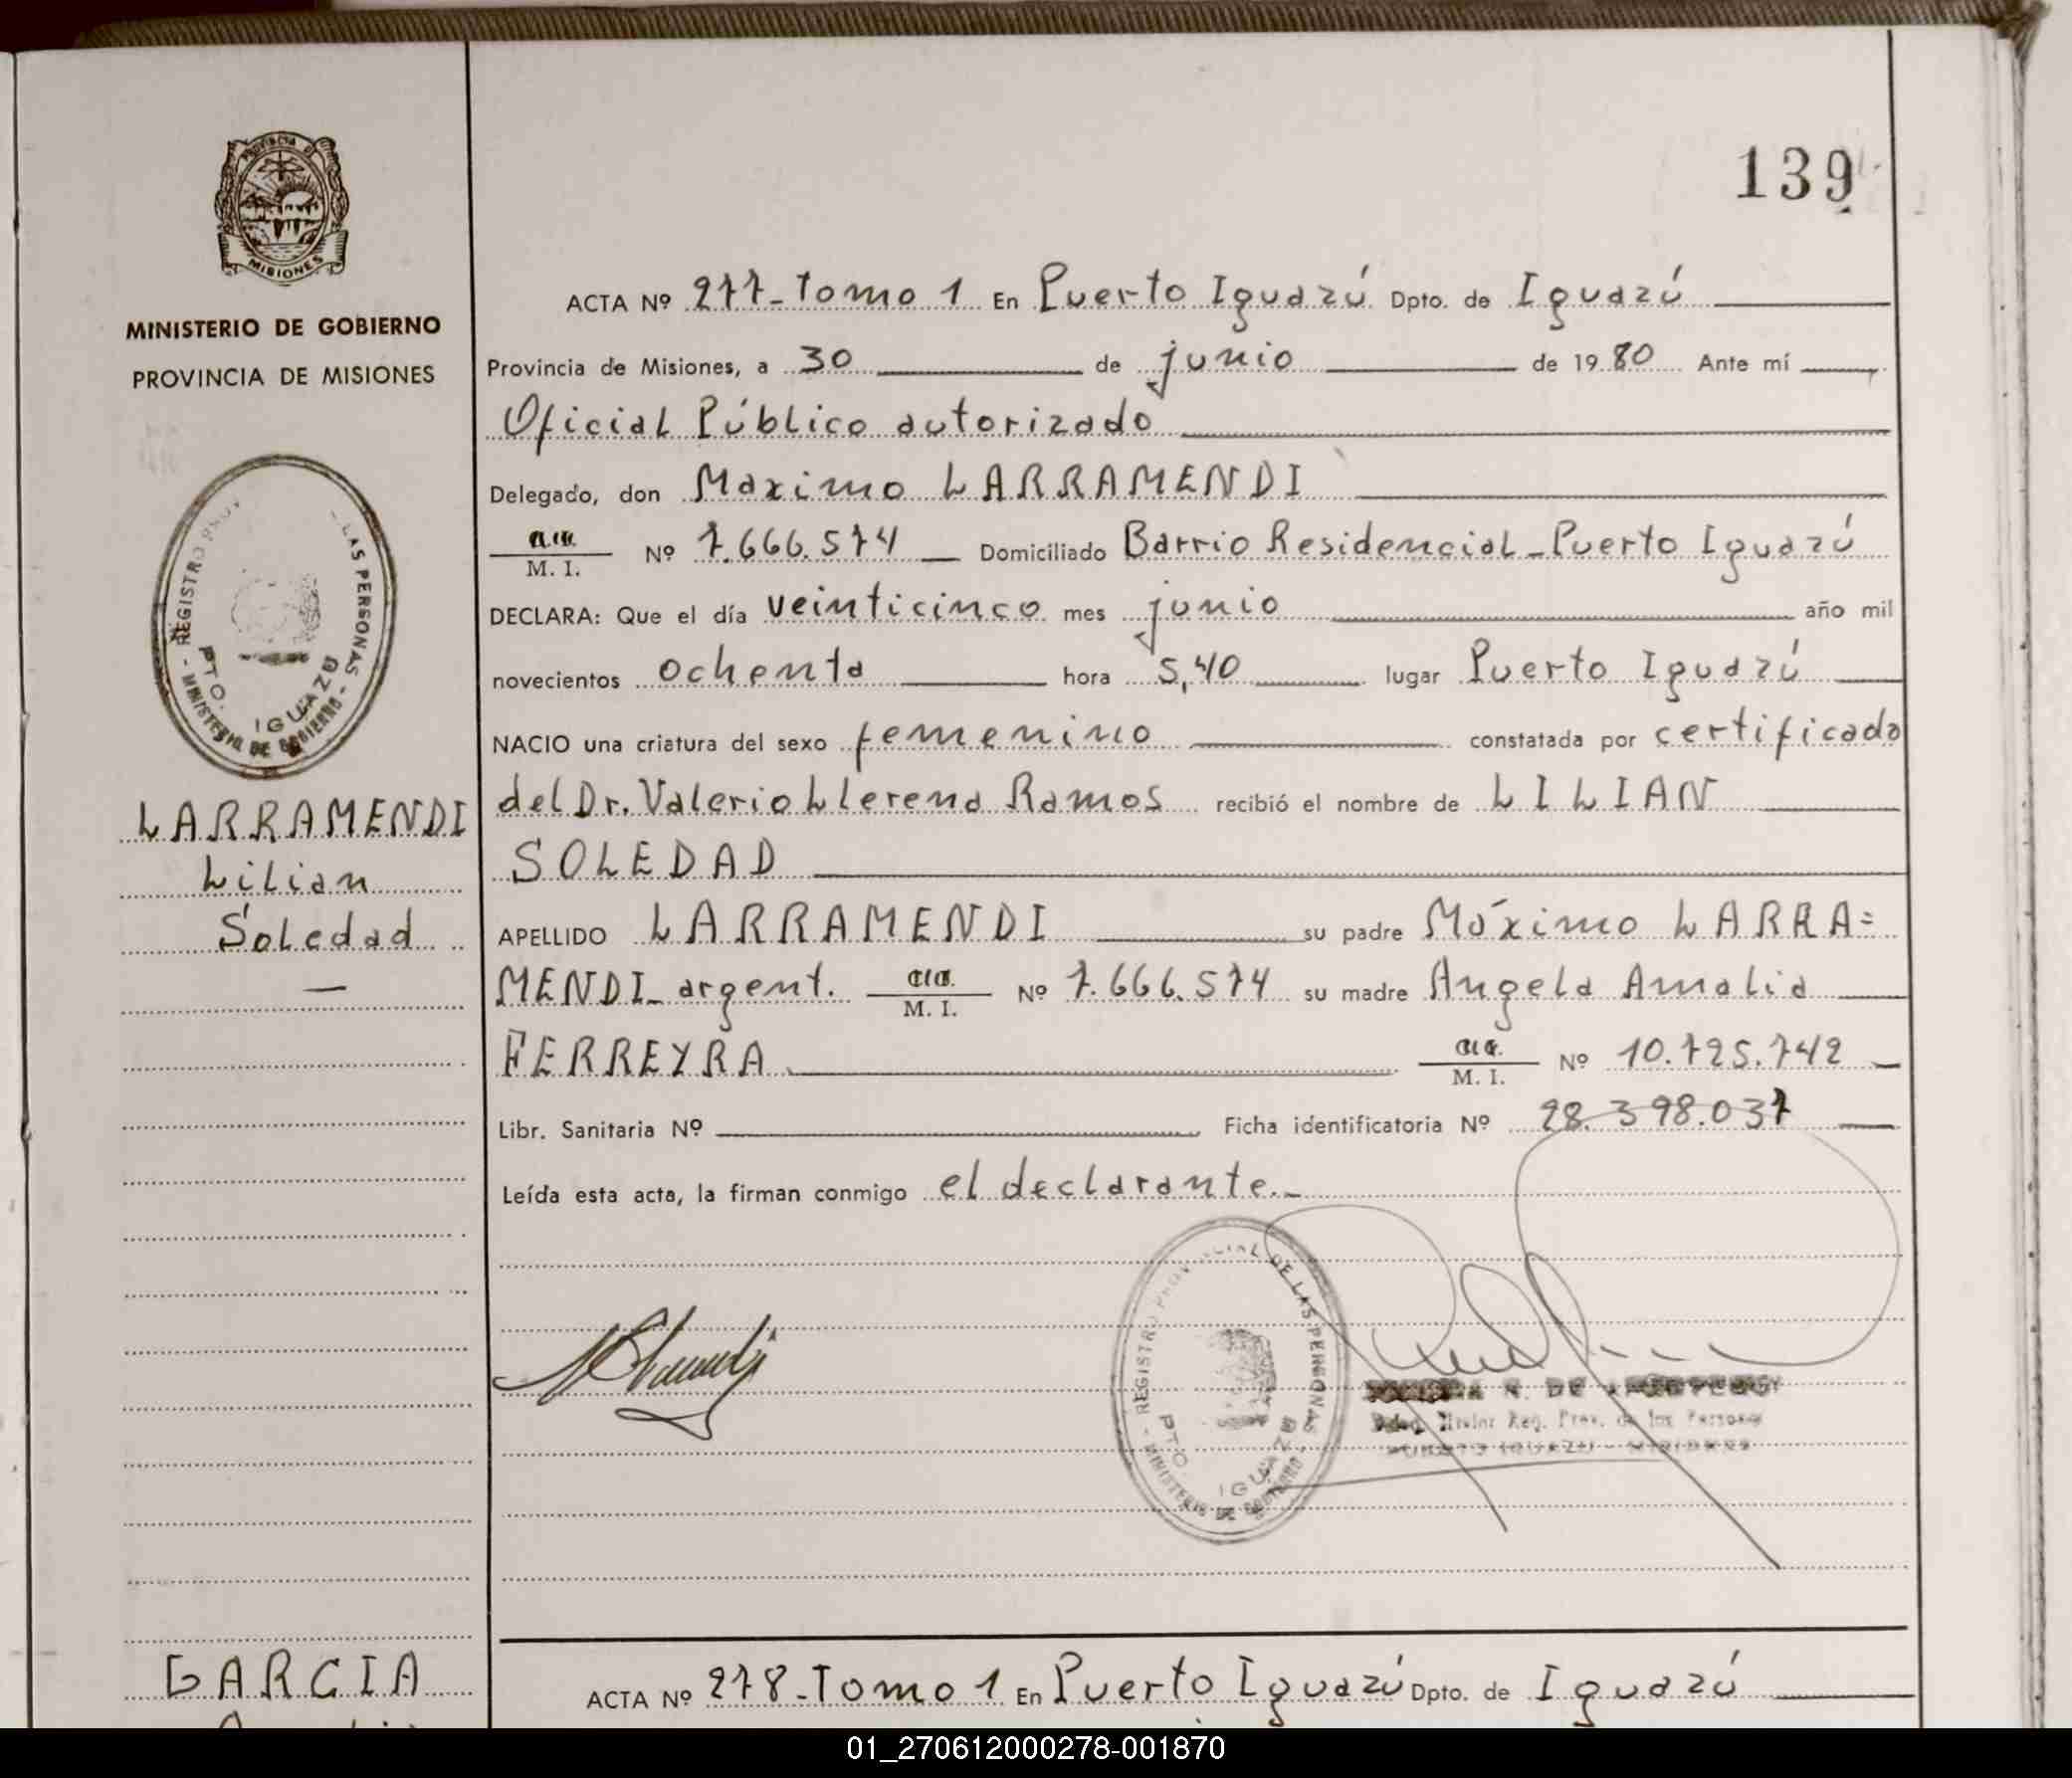 139
PROVINCIA DE
MISIONES
MINISTERIO DE GOBIERNO
PROVINCIA DE MISIONES
- REGISTRO PROV LAS PERSONAS -
MINISTERIO DE GOBIERNO
PTO. IGUAZU
LARRAMENDI
Lilian
Soledad
—
ACTA Nº 277-Tomo 1 En Puerto Iguazú Dpto. de Iguazú
Provincia de Misiones, a 30 de junio de 1980 Ante mí
Oficial Público autorizado
Delegado, don Maximo LARRAMENDI
M. I. Nº 7.666.574 Domiciliado Barrio Residencial-Puerto Iguazú
DECLARA: Que el día veinticinco mes junio año mil
novecientos ochenta hora 5,40 lugar Puerto Iguazú
NACIO una criatura del sexo femenino constatada por certificado
del Dr. Valerio Llerena Ramos recibió el nombre de LILIAN
SOLEDAD
APELLIDO LARRAMENDI su padre Máximo LARRA=
MENDI_ argent. M. I. Nº 7.666.574 su madre Angela Amalia
FERREYRA M. I. Nº 10.725.742
Libr. Sanitaria Nº Ficha identificatoria Nº 28.398.037
Leída esta acta, la firman conmigo el declarante._
- REGISTRO PROVINCIAL DE LAS PERSONAS
MINISTERIO DE GOBIERNO
PTO. IGUAZU
N. DE
Reg. Prov. de las Personas
PUERTO IGUAZU - MISIONES
GARCIA
ACTA Nº 278-Tomo 1 En Puerto Iguazú Dpto. de Iguazú
01_270612000278-001870